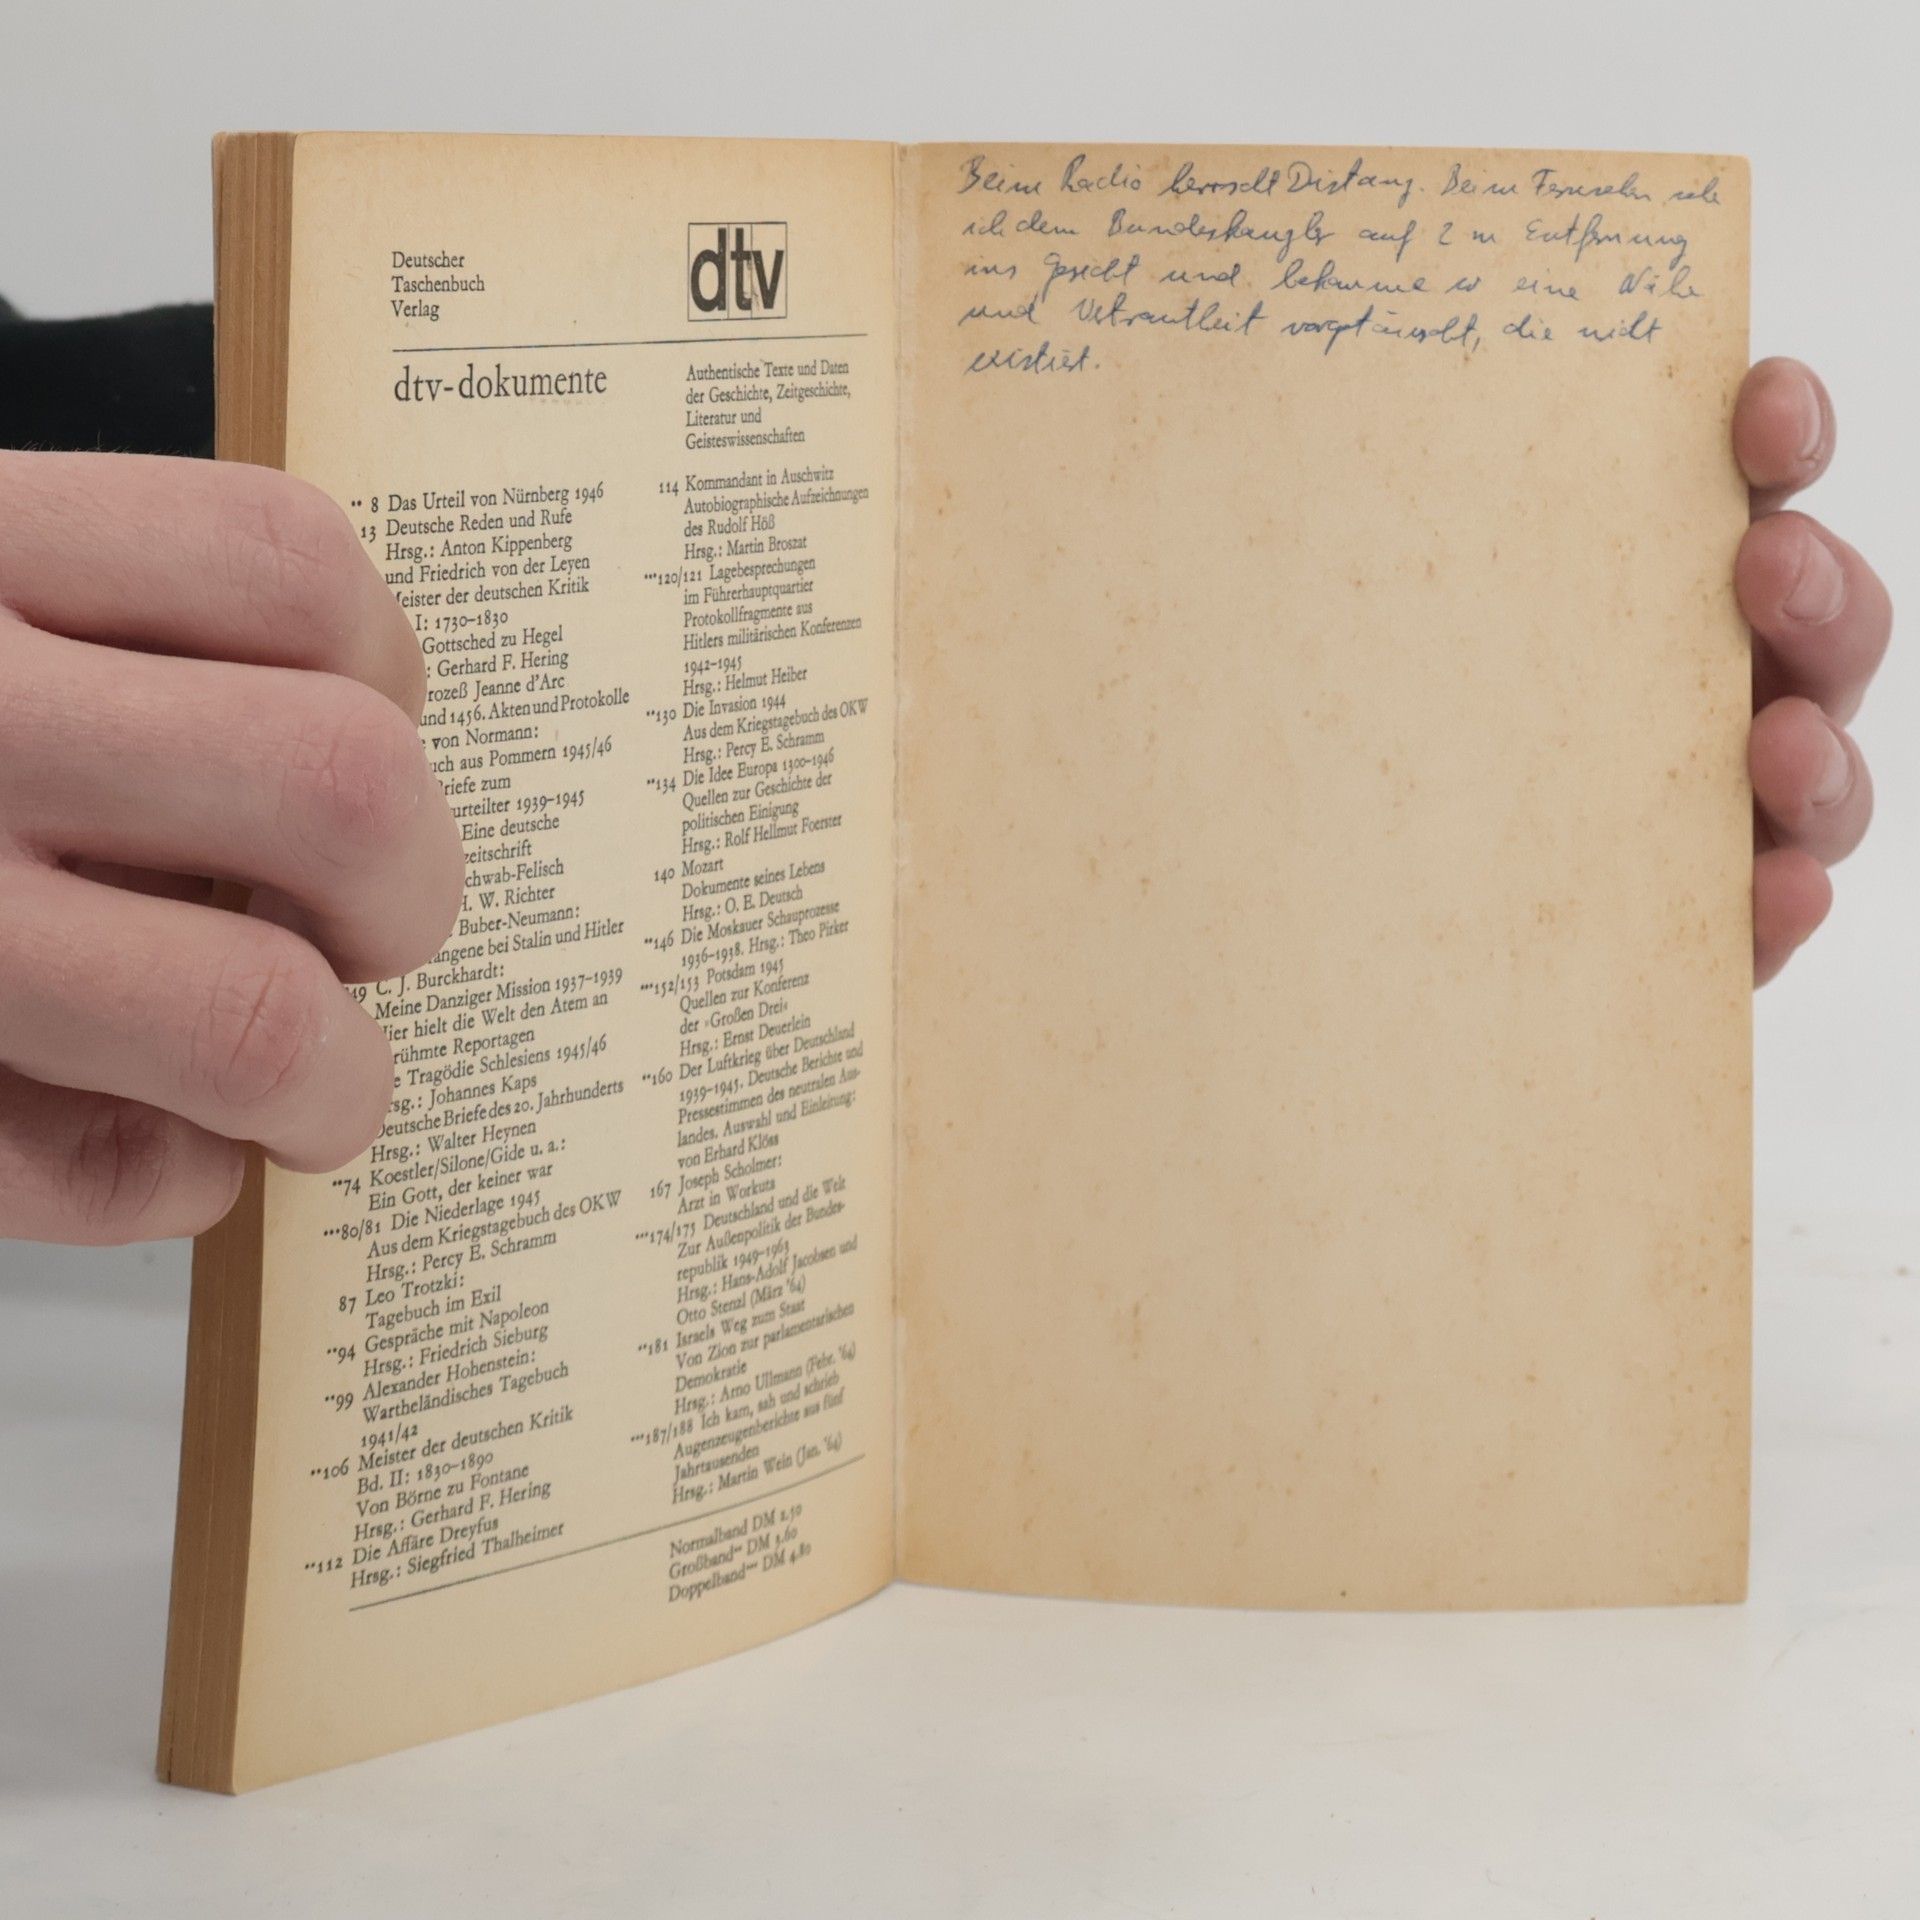 Deutscher
Taschenbuch
Verlag
dtv
dtv-dokumente
Authentische Texte und Daten
der Geschichte, Zeitgeschichte,
Literatur und
Geisteswissenschaften
** 8 Das Urteil von Nürnberg 1946
13 Deutsche Reden und Rufe
Hrsg.: Anton Kippenberg
und Friedrich von der Leyen
eister der deutschen Kritik
I: 1730–1830
Gottsched zu Hegel
: Gerhard F. Hering
rozeß Jeanne d'Arc
und 1456. Akten und Protokolle
von Normann:
uch aus Pommern 1945/46
riefe zum
urteilter 1939–1945
Eine deutsche
zeitschrift
chwab-Felisch
H. W. Richter
Buber-Neumann:
angene bei Stalin und Hitler
49 C. J. Burckhardt:
Meine Danziger Mission 1937–1939
ier hielt die Welt den Atem an
rühmte Reportagen
e Tragödie Schlesiens 1945/46
rsg.: Johannes Kaps
Deutsche Briefe des 20. Jahrhunderts
Hrsg.: Walter Heynen
**74 Koestler/Silone/Gide u. a.:
Ein Gott, der keiner war
***80/81 Die Niederlage 1945
Aus dem Kriegstagebuch des OKW
Hrsg.: Percy E. Schramm
87 Leo Trotzki:
Tagebuch im Exil
**94 Gespräche mit Napoleon
Hrsg.: Friedrich Sieburg
**99 Alexander Hohenstein:
Warthelländisches Tagebuch
1941/42
**106 Meister der deutschen Kritik
Bd. II: 1830–1890
Von Börne zu Fontane
Hrsg.: Gerhard F. Hering
**112 Die Affäre Dreyfus
Hrsg.: Siegfried Thalheimer
114 Kommandant in Auschwitz
Autobiographische Aufzeichnungen
des Rudolf Höß
Hrsg.: Martin Broszat
***120/121 Lagebesprechungen
im Führerhauptquartier
Protokollfragmente aus
Hitlers militärischen Konferenzen
1942–1945
Hrsg.: Helmut Heiber
**130 Die Invasion 1944
Aus dem Kriegstagebuch des OKW
Hrsg.: Percy E. Schramm
**134 Die Idee Europa 1300–1946
Quellen zur Geschichte der
politischen Einigung
Hrsg.: Rolf Hellmut Foerster
140 Mozart
Dokumente seines Lebens
Hrsg.: O. E. Deutsch
**146 Die Moskauer Schauprozesse
1936–1938. Hrsg.: Theo Pirker
***152/153 Potsdam 1945
Quellen zur Konferenz
der »Großen Drei«
Hrsg.: Ernst Deuerlein
**160 Der Luftkrieg über Deutschland
1939–1945. Deutsche Berichte und
Pressestimmen des neutralen Aus-
landes. Auswahl und Einleitung:
von Erhard Klöss
167 Joseph Scholmer:
Arzt in Workuta
***174/175 Deutschland und die Welt
Zur Außenpolitik der Bundes-
republik 1949–1963
Hrsg.: Hans-Adolf Jacobsen und
Otto Stenzl (März '64)
**181 Israels Weg zum Staat
Von Zion zur parlamentarischen
Demokratie
Hrsg.: Arno Ullmann (Febr. '64)
***187/188 Ich kam, sah und schrieb
Augenzeugenberichte aus fünf
Jahrtausenden
Hrsg.: Martin Wein (Jan. '64)
Normalband DM 2.50
Großband** DM 3.60
Doppelband*** DM 4.80
Beim Radio herrscht Distanz. Beim Fernsehen sehe
ich dem Bundeskanzler auf 2 m Entfernung
ins Gesicht und bekomme so eine Nähe
und Vertrautheit vorgetäuscht, die nicht
existiert.